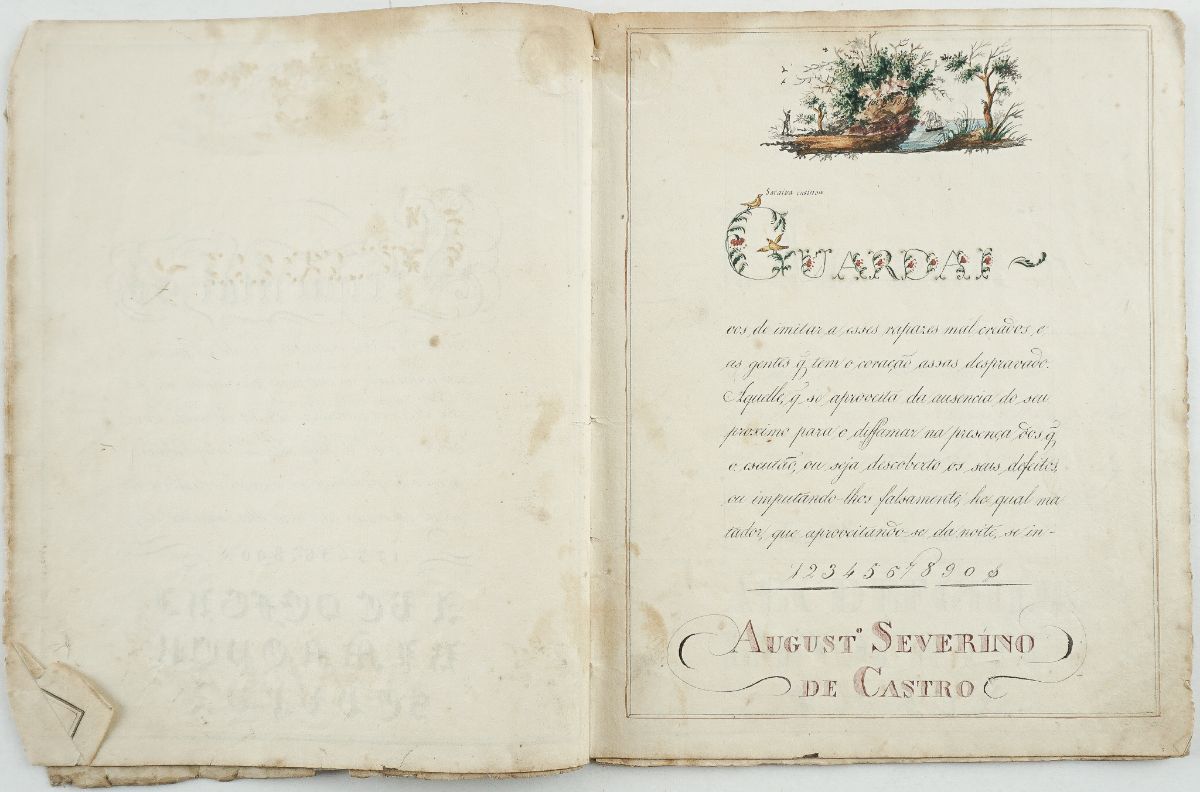 Saraiva ensinou
GUARDAI
vos de imitar a esses rapazes mal creados, e
as gentes q̃ tem o coração assas despravado.
Aquelle, q̃ se aproveita da ausencia do seu
proximo para o diffamar na presença dos q̃
o escutão, ou seja descoberto os seus defeitos,
ou imputando-lhos falsamente, he qual ma
tador, que aproveitando-se da noite, se in-
1 2 3 4 5 6 7 8 9 0 $
AUGUSTº SEVERINO
DE CASTRO